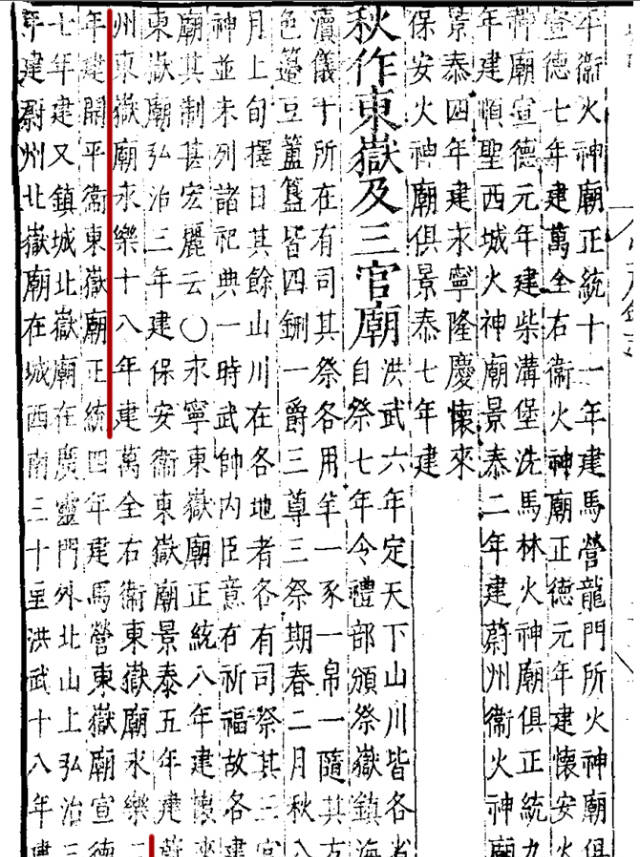 平衞火神廟正統十一年建馬營龍門所火神廟俱
宣德七年建萬全右衞火神廟正德元年建懷安火
神廟宣德元年建柴溝堡洗馬林火神廟俱正統九
年建順聖西城火神廟景泰二年建蔚州衞火神廟
景泰四年建永寧隆慶懷來
保安火神廟俱景泰七年建
秋作東嶽及三官廟
洪武六年定天下山川皆各省
自祭七年令禮部頒祭嶽鎮海
瀆儀十所在有司其祭各用羊一豕一帛一隨其方
色籩豆簠簋皆四鉶一爵三尊三祭期春二月秋八
月上旬擇日其餘山川在各地者各有司祭其三官
神並未列諸祀典一時武帥内臣意在祈福故各建
廟其制甚宏麗云○永寧東嶽廟正統八年建懷來
東嶽廟弘治三年建保安衞東嶽廟景泰五年建蔚
州東嶽廟永樂十八年建萬全右衞東嶽廟永樂二
年建開平衞東嶽廟正統四年建馬營東嶽廟宣德
七年建又鎮城北嶽廟在廣靈門外北山上弘治三
年建蔚州北嶽廟在城西南三十里洪武十八年建